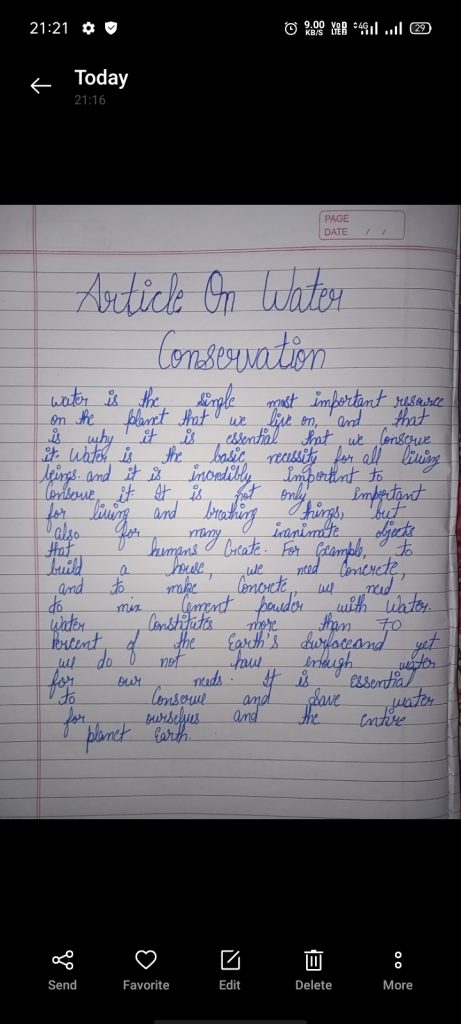 21:21 9.00 KB/S VoD LTE 4G 29
Today
21:16
PAGE
DATE / /
Article On Water
Conservation
water is the single most important resource
on the planet that we live on, and that
is why it is essential that we Conserve
it. Water is the basic necessity for all living
beings. and it is incredibly important to
Conserve it. It is not only important
for living and breathing things, but
also for many inanimate objects
that humans Create. For Example, to
build a house, we need Concrete,
and to make Concrete, we need,
to mix Cement powder with Water.
Water Constitutes more than 70
Percent of the Earth's Surface and yet
we do not have enough water
for our needs. It is Essential
to Conserve and Save water
for ourselves and the entire
planet Earth.
Send Favorite Edit Delete More